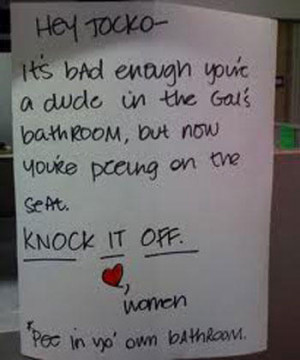 HEY JOCKO-
it's bAd enough you're
a dude in the Gal's
bathROOM, but now
you're peeing on the
seAt.
KNOCK IT OFF.
,
women
*Pee in yo' own bAthroom.